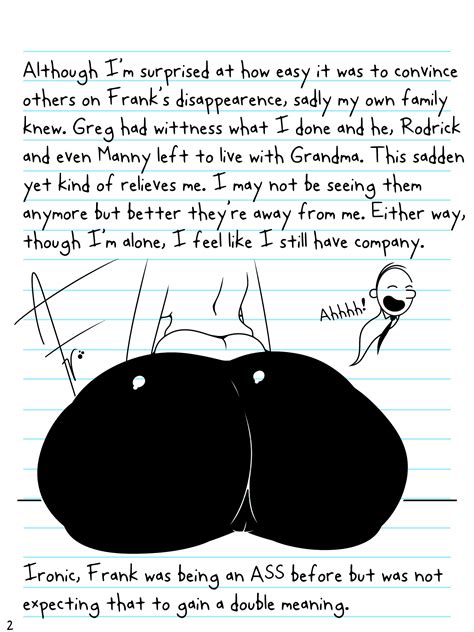 Although I'm surprised at how easy it was to convince
others on Frank's disappearence, sadly my own family
knew. Greg had wittness what I done and he, Rodrick
and even Manny left to live with Grandma. This sadden
yet kind of relieves me. I may not be seeing them
anymore but better they're away from me. Either way,
though I'm alone, I feel like I still have company.
Ahhhh!
Ironic, Frank was being an ASS before but was not
expecting that to gain a double meaning.
2